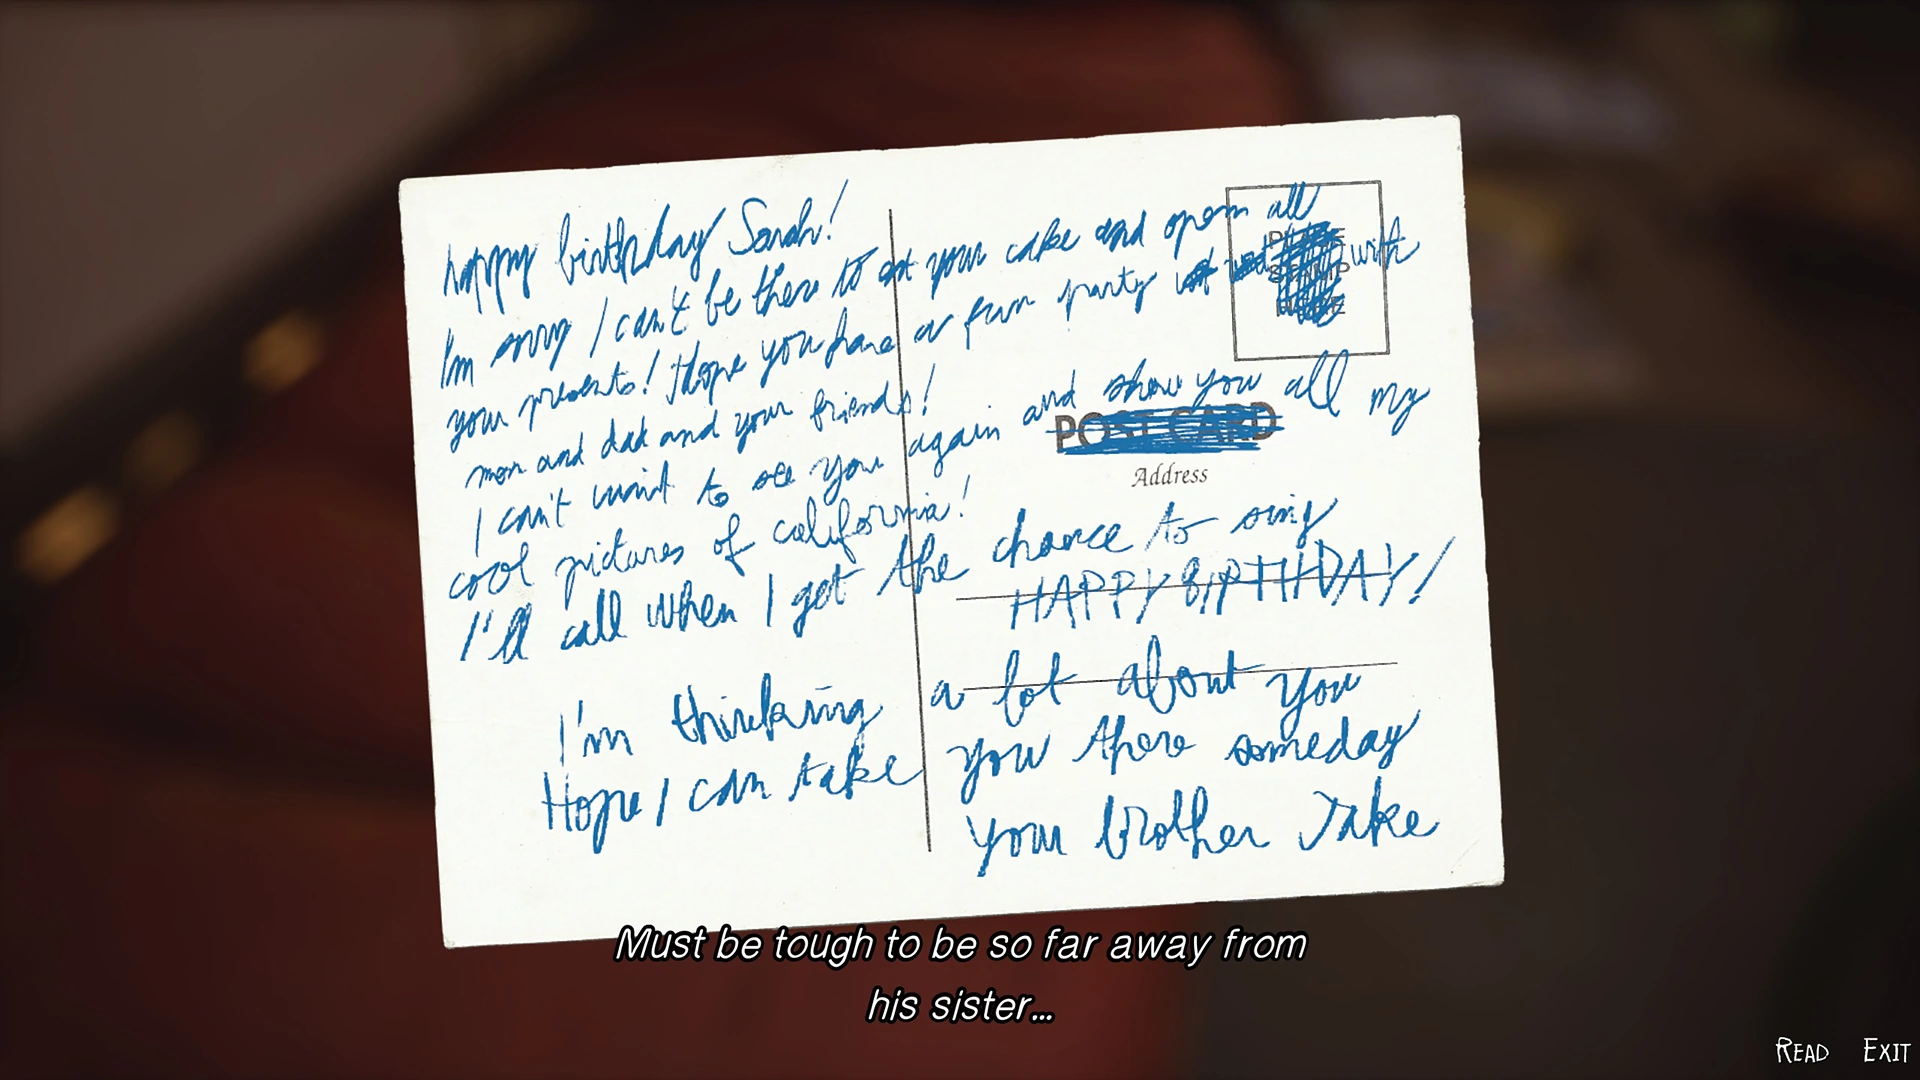 happy birthday Sarah!
I'm sorry I can't be there to eat your cake and open all
your presents! Hope you have a fun party with
mom and dad and your friends!
I can't wait to see you again and show you all my
cool pictures of california!
I'll call when I get the chance to sing
HAPPY BIRTHDAY!
I'm thinking a lot about you
Hope I can take you there someday
your brother Jake
PLACE
STAMP
HERE
POST CARD
Address
Must be tough to be so far away from
his sister...
READ EXIT